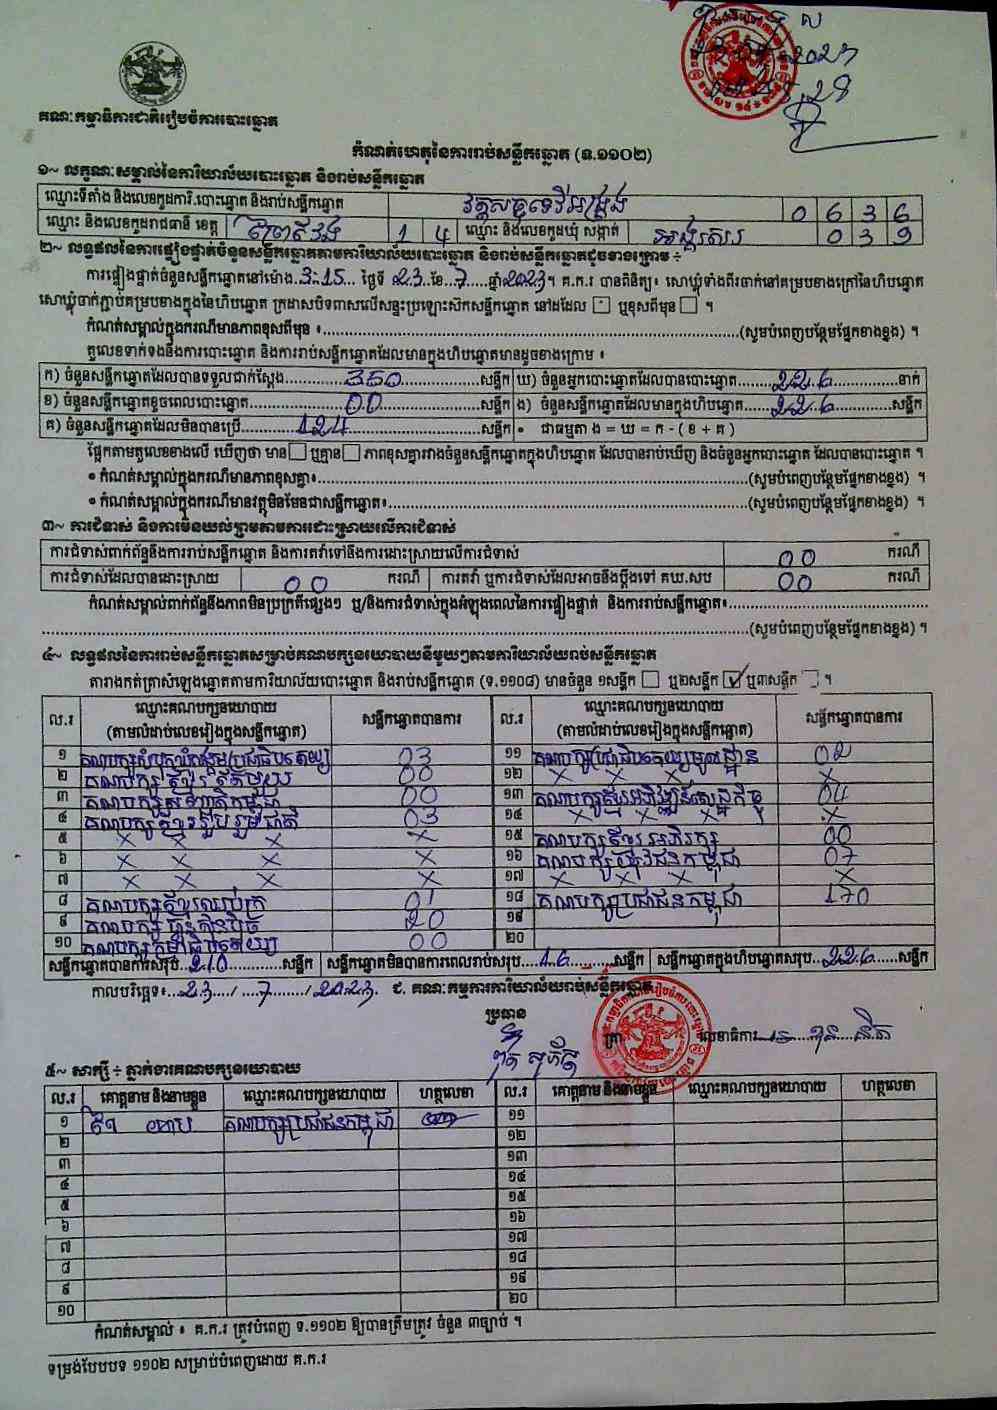 2023
28
គណៈកម្មាធិការជាតិរៀបចំការបោះឆ្នោត
កំណត់ហេតុនៃការរាប់សន្លឹកឆ្នោត (ទ.១១០២)
១~ លក្ខណៈសម្គាល់នៃការិយាល័យបោះឆ្នោត និងរាប់សន្លឹកឆ្នោត
ឈ្មោះទីតាំង និងលេខកូដការិ.បោះឆ្នោត និងរាប់សន្លឹកឆ្នោត 0 6 3 6
ឈ្មោះ និងលេខកូដរាជធានី ខេត្ត ព្រៃវែង 1 4 ឈ្មោះ និងលេខកូដឃុំ សង្កាត់ អង្គរសរ 0 3 9
២~ លទ្ធផលនៃការផ្ទៀងផ្ទាត់ចំនួនសន្លឹកឆ្នោតតាមការិយាល័យបោះឆ្នោត និងរាប់សន្លឹកឆ្នោតដូចខាងក្រោម ÷
ការផ្ទៀងផ្ទាត់ចំនួនសន្លឹកឆ្នោតនៅម៉ោង 3:15 ថ្ងៃទី 23 ខែ 7 ឆ្នាំ 2023។ គ.ក.រ បានពិនិត្យ៖ សោឃ្លុំទាំងពីរចាក់នៅគម្របខាងក្រៅនៃហិបឆ្នោត
សោឃ្លុំចាក់ភ្ជាប់គម្របខាងក្នុងនៃហិបឆ្នោត ក្រដាសបិទពាសលើសន្ទះប្រឡោះស៊កសន្លឹកឆ្នោត នៅដដែល ☐ ឬខុសពីមុន ☐ ។
កំណត់សម្គាល់ក្នុងករណីមានភាពខុសពីមុន ៖ (សូមបំពេញបន្ថែមផ្នែកខាងខ្នង) ។
តួលេខទាក់ទងនឹងការបោះឆ្នោត និងការរាប់សន្លឹកឆ្នោតដែលមានក្នុងហិបឆ្នោតមានដូចខាងក្រោម ៖
ក) ចំនួនសន្លឹកឆ្នោតដែលបានទទួលជាក់ស្តែង 350 សន្លឹក ឃ) ចំនួនអ្នកបោះឆ្នោតដែលបានបោះឆ្នោត 226 នាក់
ខ) ចំនួនសន្លឹកឆ្នោតខូចពេលបោះឆ្នោត 00 សន្លឹក ង) ចំនួនសន្លឹកឆ្នោតដែលមានក្នុងហិបឆ្នោត 226 សន្លឹក
គ) ចំនួនសន្លឹកឆ្នោតដែលមិនបានប្រើ 124 សន្លឹក • ជាធម្មតា ង = ឃ = ក - ( ខ + គ )
ផ្អែកតាមតួលេខខាងលើ ឃើញថា មាន ☐ ឬគ្មាន ☐ ភាពខុសគ្នារវាងចំនួនសន្លឹកឆ្នោតក្នុងហិបឆ្នោត ដែលបានរាប់ឃើញ និងចំនួនអ្នកបោះឆ្នោត ដែលបានបោះឆ្នោត ។
• កំណត់សម្គាល់ក្នុងករណីមានភាពខុសគ្នា៖ (សូមបំពេញបន្ថែមផ្នែកខាងខ្នង) ។
• កំណត់សម្គាល់ក្នុងករណីមានវត្ថុមិនមែនជាសន្លឹកឆ្នោត៖ (សូមបំពេញបន្ថែមផ្នែកខាងខ្នង) ។
៣~ ការជំទាស់ និងការមិនយល់ព្រមតាមការដោះស្រាយលើការជំទាស់
ការជំទាស់ពាក់ព័ន្ធនឹងការរាប់សន្លឹកឆ្នោត និងការតវ៉ាទៅនឹងការដោះស្រាយលើការជំទាស់ 00 ករណី
ការជំទាស់ដែលបានដោះស្រាយ 00 ករណី ការតវ៉ា ឬការជំទាស់ដែលអាចនឹងប្តឹងទៅ គឃ.សប 00 ករណី
កំណត់សម្គាល់ពាក់ព័ន្ធនឹងភាពមិនប្រក្រតីផ្សេងៗ ឬ/និងការជំទាស់ក្នុងអំឡុងពេលនៃការផ្ទៀងផ្ទាត់ និងការរាប់សន្លឹកឆ្នោត៖
(សូមបំពេញបន្ថែមផ្នែកខាងខ្នង) ។
៤~ លទ្ធផលនៃការរាប់សន្លឹកឆ្នោតសម្រាប់គណបក្សនយោបាយនីមួយៗតាមការិយាល័យរាប់សន្លឹកឆ្នោត
តារាងកត់ត្រាសំឡេងឆ្នោតតាមការិយាល័យបោះឆ្នោត និងរាប់សន្លឹកឆ្នោត (ទ.១១០៨) មានចំនួន ១សន្លឹក ☐ ឬ២សន្លឹក ☑ ឬ៣សន្លឹក ☐ ។
ល.រ ឈ្មោះគណបក្សនយោបាយ (តាមលំដាប់លេខរៀងក្នុងសន្លឹកឆ្នោត) សន្លឹកឆ្នោតបានការ ល.រ ឈ្មោះគណបក្សនយោបាយ (តាមលំដាប់លេខរៀងក្នុងសន្លឹកឆ្នោត) សន្លឹកឆ្នោតបានការ
១ គណបក្សសំបុកឃ្មុំសង្គមប្រជាធិបតេយ្យ 03 ១១ គណបក្សប្រជាធិបតេយ្យមូលដ្ឋាន 02
២ គណបក្សខ្មែរតែមួយ 00 ១២ X X X X
៣ គណបក្សសញ្ជាតិកម្ពុជា 00 ១៣ គណបក្សខ្មែរអភិវឌ្ឍន៍សេដ្ឋកិច្ច 04
៤ គណបក្សខ្មែររួបរួមជាតិ 03 ១៤ X X X X
៥ X X X X ១៥ គណបក្សខ្មែរអភិរក្ស 00
៦ X X X X ១៦ គណបក្សហ៊្វុនស៊ិនប៉ិច 07
៧ X X X X ១៧ X X X X
៨ គណបក្សខ្មែរឈប់ក្រ 01 ១៨ គណបក្សប្រជាជនកម្ពុជា 170
៩ គណបក្សហ្វ៊ុនស៊ិនប៉ិច 20 ១៩
១០ គណបក្សកម្លាំងប្រជាធិបតេយ្យ 00 ២០
សន្លឹកឆ្នោតបានការសរុប 210 សន្លឹក សន្លឹកឆ្នោតមិនបានការពេលរាប់សរុប 16 សន្លឹក សន្លឹកឆ្នោតក្នុងហិបឆ្នោតសរុប 226 សន្លឹក
កាលបរិច្ឆេទ៖ 23 / 7 / 2023 ជ. គណៈកម្មការការិយាល័យរាប់សន្លឹកឆ្នោត
ប្រធាន
ត្រា លេខាធិការ
៥~ សាក្សី ÷ ភ្នាក់ងារគណបក្សនយោបាយ
ល.រ គោត្តនាម និងនាមខ្លួន ឈ្មោះគណបក្សនយោបាយ ហត្ថលេខា ល.រ គោត្តនាម និងនាមខ្លួន ឈ្មោះគណបក្សនយោបាយ ហត្ថលេខា
១ គណបក្សប្រជាជនកម្ពុជា ១១
២ ១២
៣ ១៣
៤ ១៤
៥ ១៥
៦ ១៦
៧ ១៧
៨ ១៨
៩ ១៩
១០ ២០
កំណត់សម្គាល់ ៖ គ.ក.រ ត្រូវបំពេញ ទ.១១០២ ឱ្យបានត្រឹមត្រូវ ចំនួន ៣ច្បាប់ ។
ទម្រង់បែបបទ ១១០២ សម្រាប់បំពេញដោយ គ.ក.រ